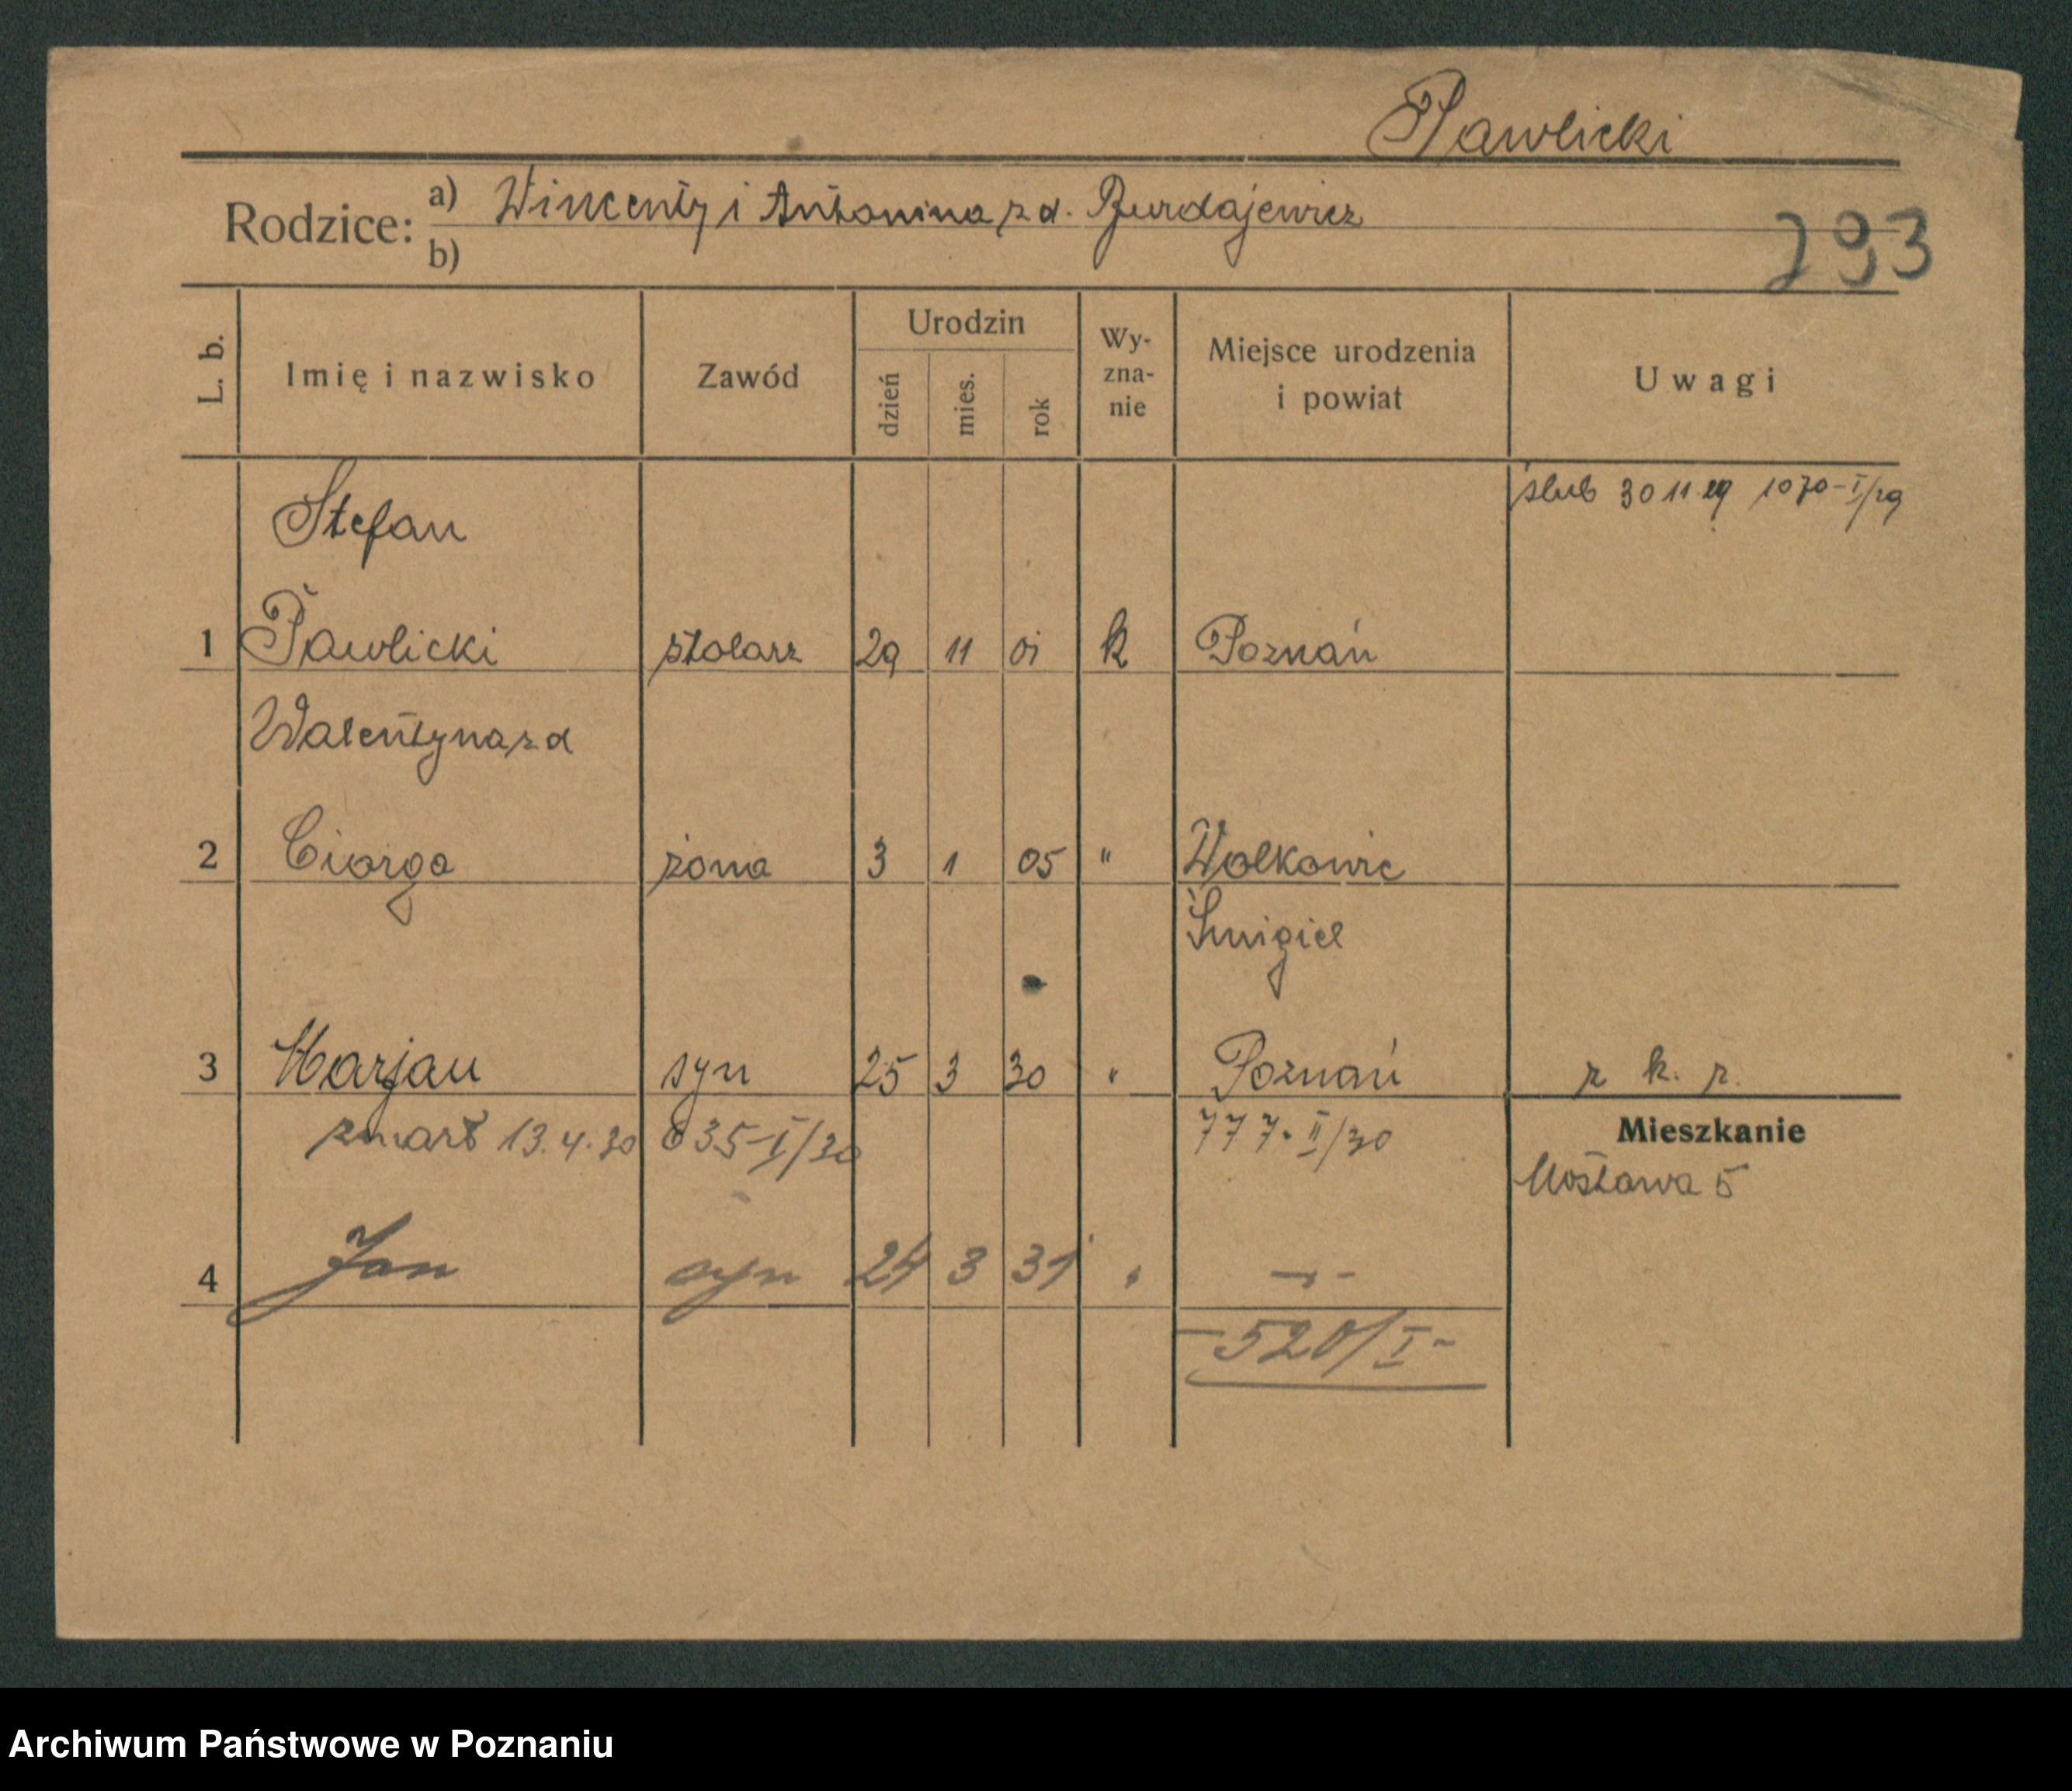 Pawlicki
Rodzice: a) Wincenty i Antonina z d. Burdajewicz
b)
293
L. b. Imię i nazwisko Zawód Urodzin dzień mies. rok Wy-zna-nie Miejsce urodzenia i powiat Uwagi
Stefan ślub 30 11 29 1070-I/29
1 Pawlicki stolarz 29 11 01 k Poznań
Walentyna z d
2 Ciorga żona 3 1 05 " Wolkowic
Śmigiel
3 Marjan syn 25 3 30 " Poznań z k. z.
zmarł 13.4.30 635-I/30 777-II/30 Mieszkanie
Mostowa 5
4 Jan syn 24 3 31 " -"-
-520/I-
Archiwum Państwowe w Poznaniu